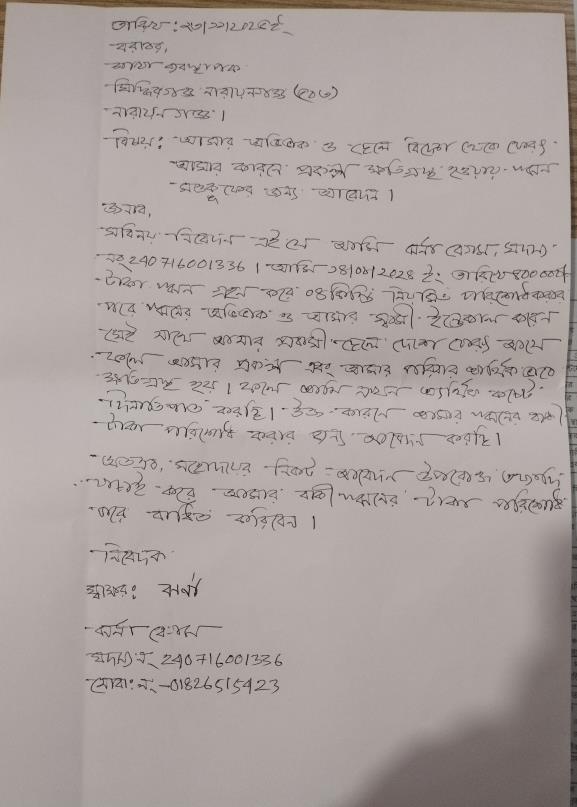 তারিখ: ২৩/১১/২০২৫ইং
বরাবর,
শাখা ব্যবস্থাপক
সিদ্ধিরগঞ্জ নারায়নগঞ্জ (৫৯৩)
নারায়নগঞ্জ।
বিষয়: আমার অভিভাবক ও ছেলে বিদেশ থেকে ফেরৎ
আসার কারনে প্রকল্প ক্ষতিগ্রস্থ হওয়ায়
মওকুফের জন্য আবেদন।
জনাব,
সবিনয় নিবেদন এই যে আমি ঝর্না বেগম, সদস্য
নং 240716001336। আমি ইং তারিখে
টাকা গ্রহন করে ০৪ কিস্তি নিয়মিত পরিশোধ করার
পরে অভিভাবক ও আমার স্বামী ইন্তেকাল করেন
সেই সাথে আমার প্রবাসী ছেলে দেশে ফেরৎ আসে
ফলে আমার প্রকল্প এবং আমার পরিবার আর্থিক ভাবে
ক্ষতিগ্রস্থ হয়। ফলে আমি এখন আর্থিক কষ্টে
দিনাতিপাত করছি। উক্ত কারনে আমার বাকী
টাকা পরিশোধ করার জন্য আবেদন করছি।
অতএব, মহোদয়ের নিকট আবেদন উপরোক্ত তথ্যাদি
যাচাই করে আমার বাকী টাকা পরিশোধ
করে বাধিত করিবেন।
নিবেদক
স্বাক্ষর: ঝর্না
ঝর্না বেগম
সদস্য নং 240716001336
মোবা: নং -01826515423